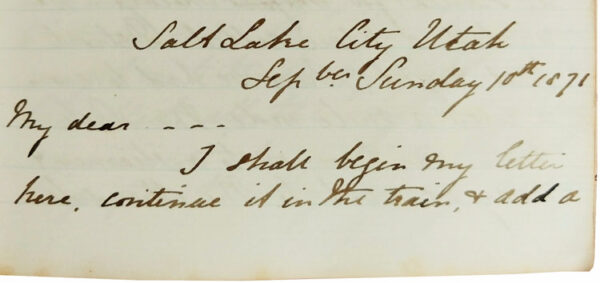 Salt Lake City Utah
Sepber Sunday 10th 1871
My dear ---
I shall begin my letter
here, continue it in the train, & add a